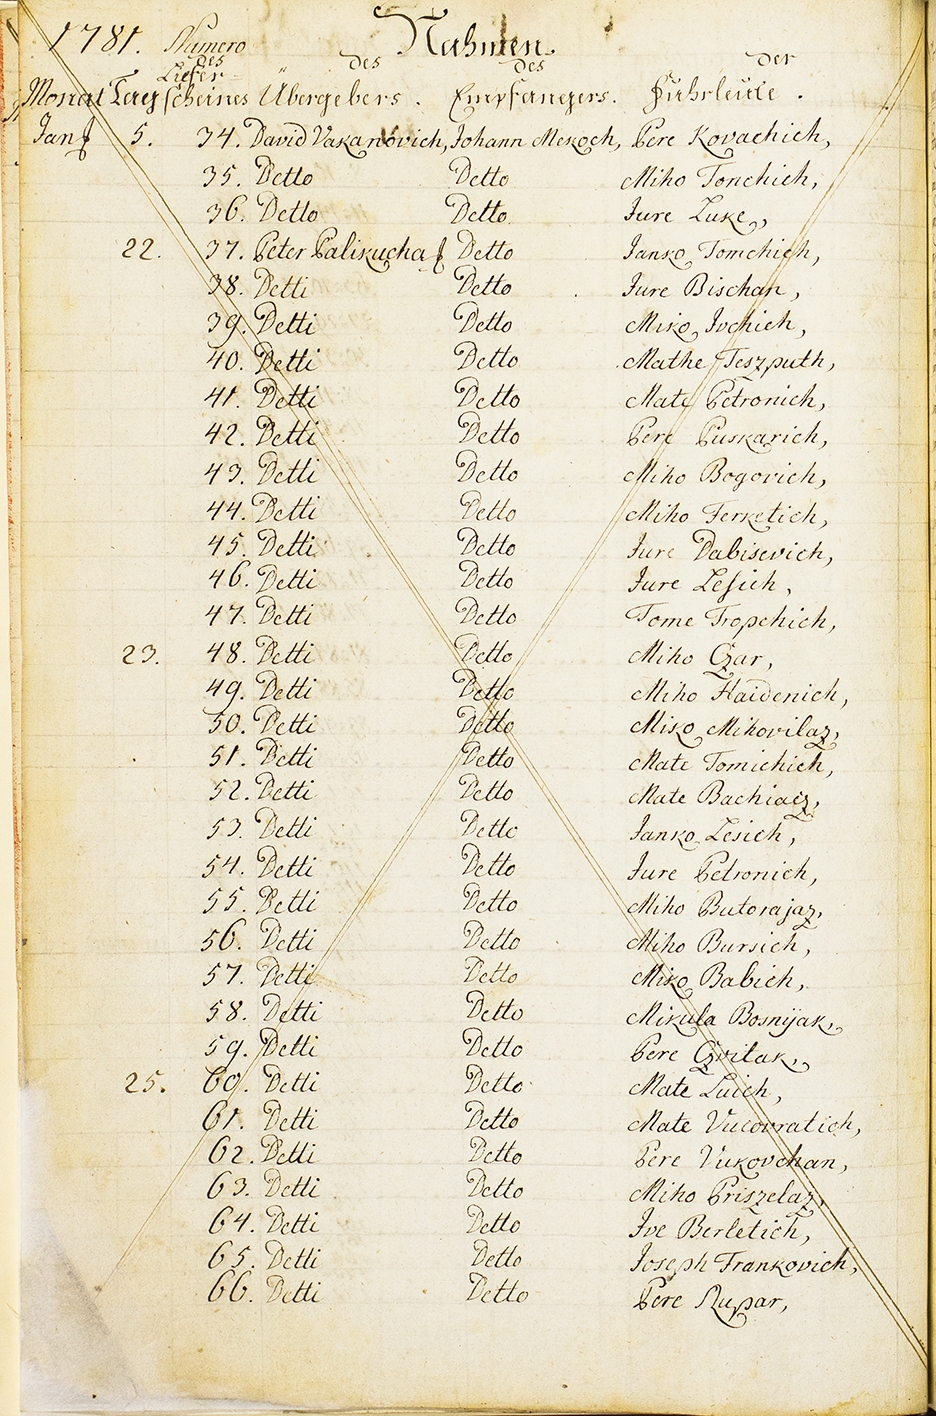 1781. Numero Nahmen
des des des der
Liefer-
Monat Tag scheines Übergebers. Empfangers. Fuhrleute.
Jan 5. 34. David Vakanovich, Johann Mekoch, Pere Kovachich,
35. Detto Detto Miho Tonchich,
36. Detto Detto Jure Luke,
22. 37. Peter Palikucha Detto Janko Tomchich,
38. Detti Detto Jure Bischan,
39. Detti Detto Miko Ivchich,
40. Detti Detto Mathe Teszputh,
41. Detti Detto Mate Petronich,
42. Detti Detto Pere Puskarich,
43. Detti Detto Miho Bogovich,
44. Detti Detto Miho Ferketich,
45. Detti Detto Jure Dabisevich,
46. Detti Detto Jure Lesich,
47. Detti Detto Tome Tropchich,
23. 48. Detti Detto Miho Czar,
49. Detti Detto Miho Haidenich,
50. Detti Detto Miko Mikovilaz,
51. Detti Detto Mate Tomichich,
52. Detti Detto Mate Bachiacz,
53. Detti Detto Janko Lesich,
54. Detti Detto Jure Petronich,
55. Detti Detto Miho Butorajaz,
56. Detti Detto Miho Bursich,
57. Detti Detto Miko Babich,
58. Detti Detto Mikula Bosnijak,
59. Detti Detto Pere Czvitak,
25. 60. Detti Detto Mate Luich,
61. Detti Detto Mate Vucovratich,
62. Detti Detto Pere Vukovchan,
63. Detti Detto Miho Priszelaz,
64. Detti Detto Ive Berletich,
65. Detti Detto Joseph Frankovich,
66. Detti Detto Pere Rupar,